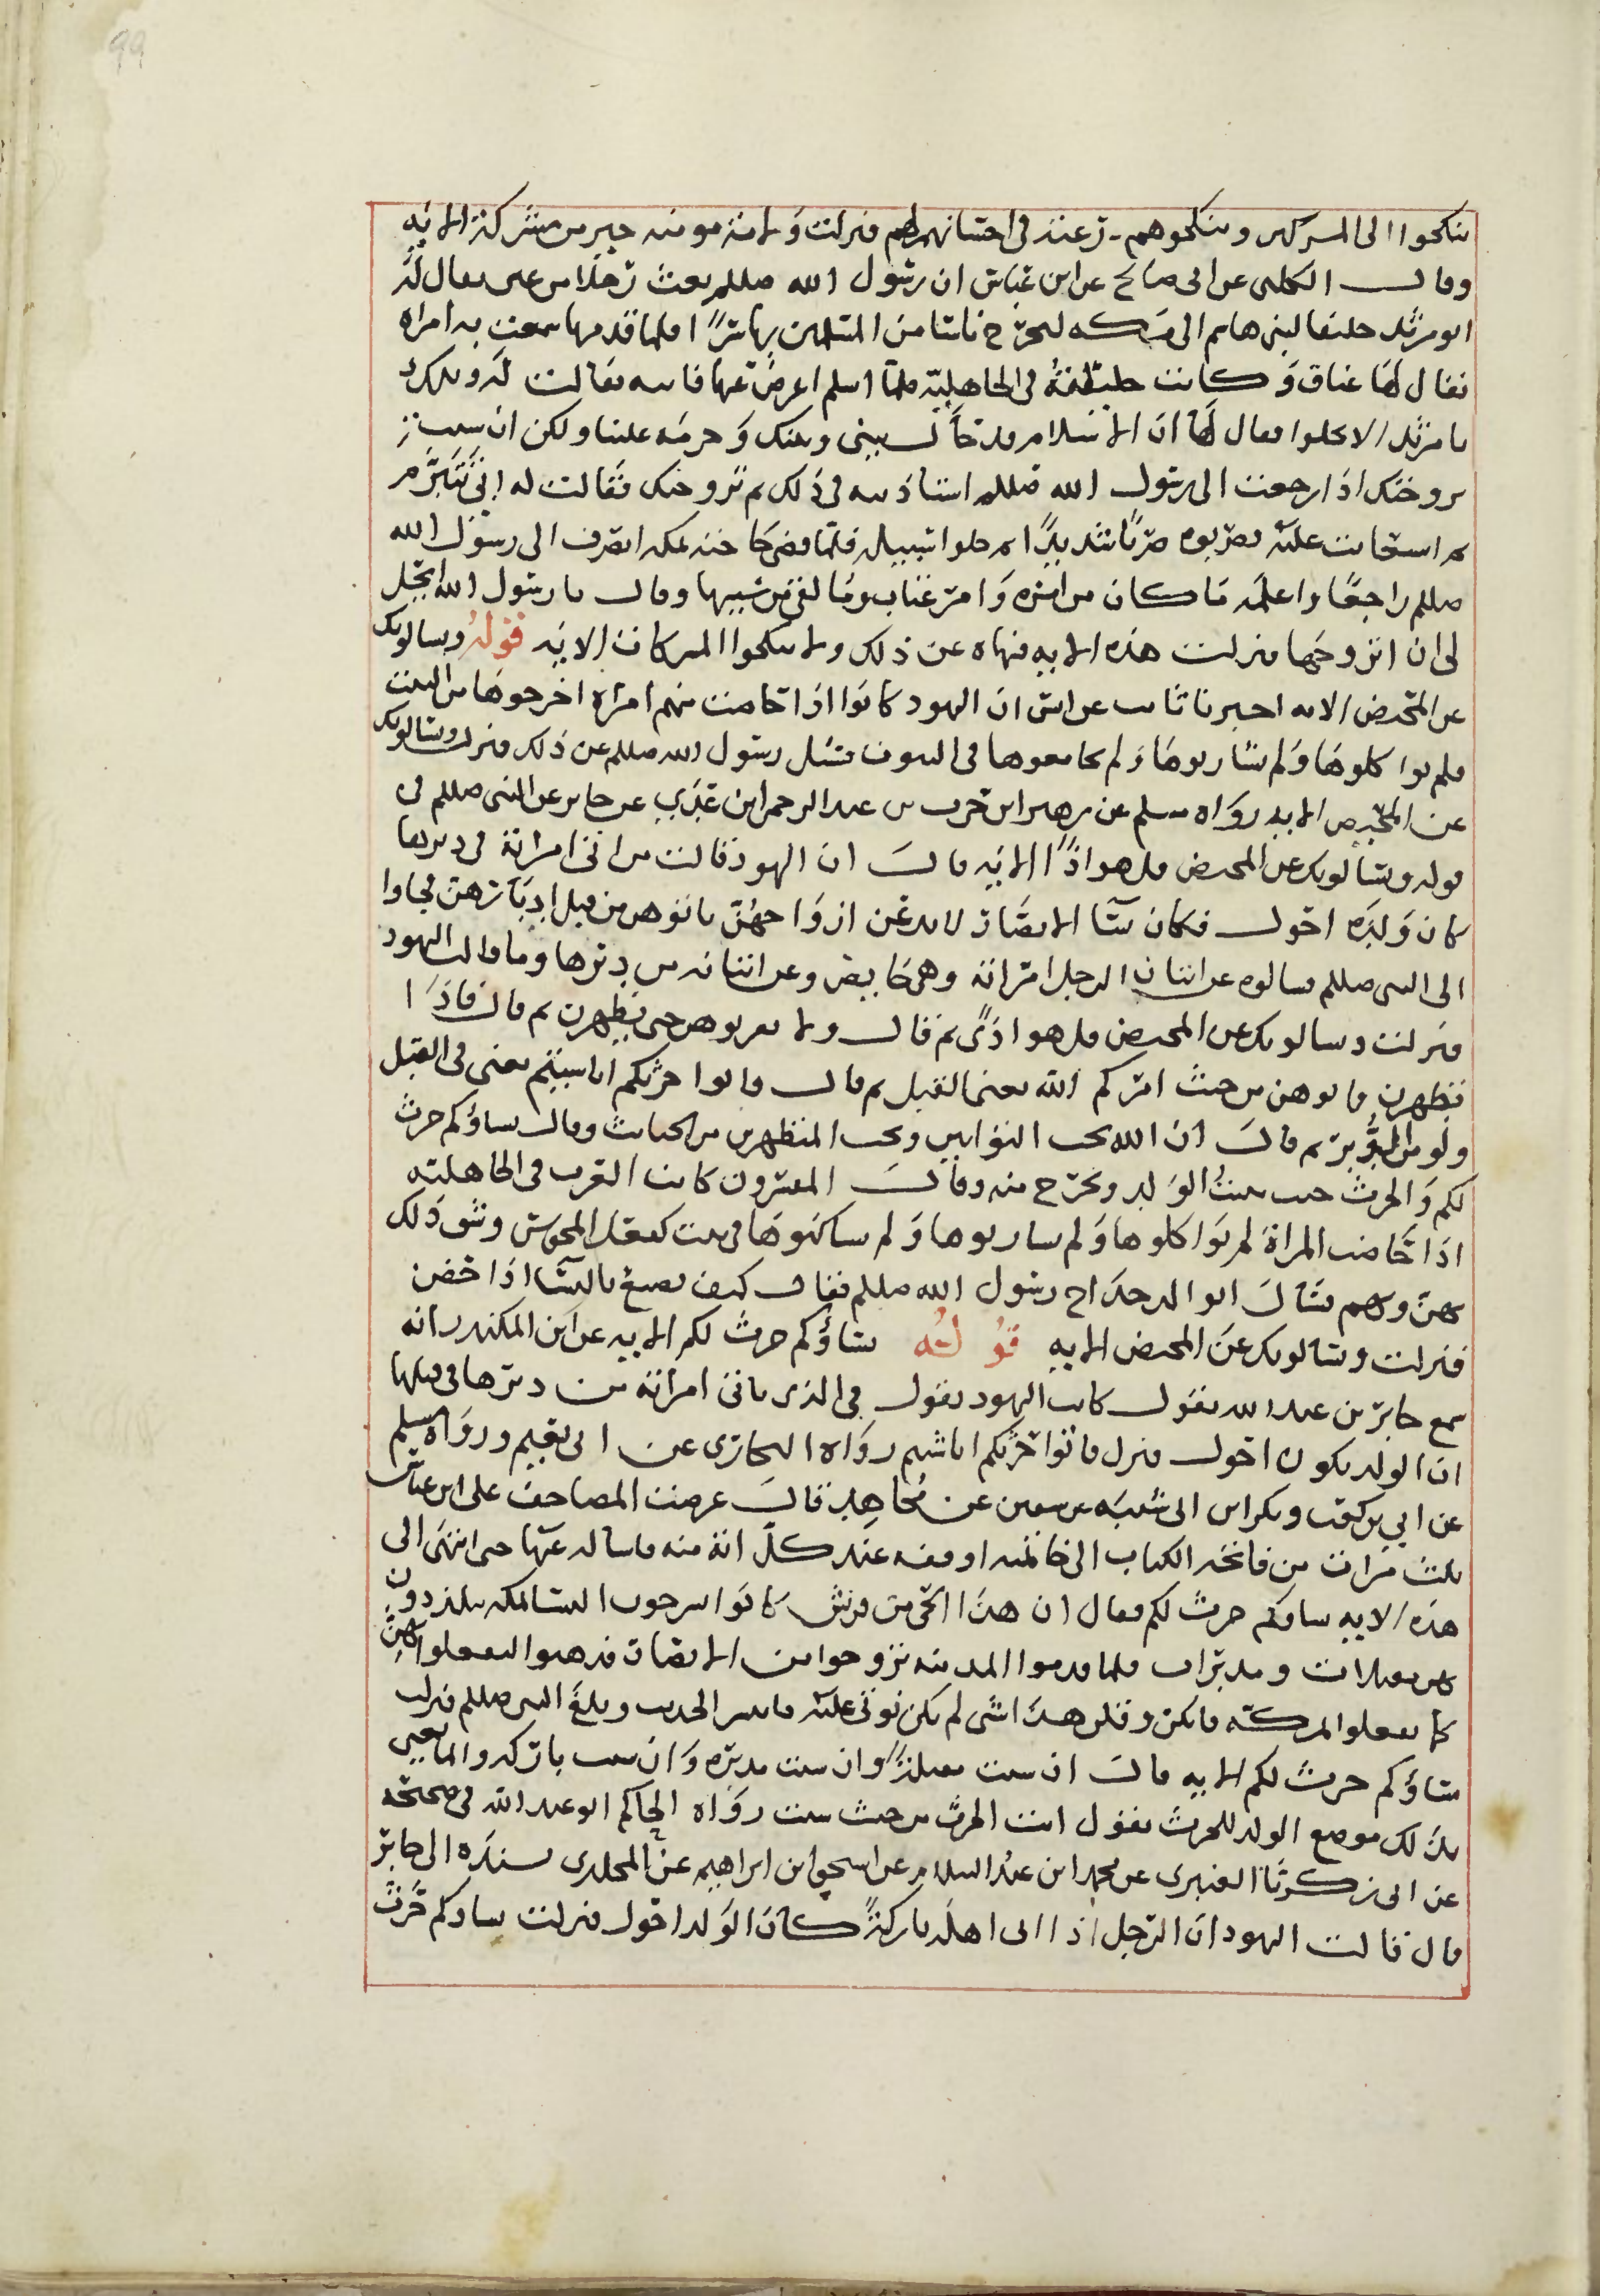 99
ينكحوا الى المشركين وينكحوهم رغبة فى احسابهم لهم فنزلت ولامة مومنه خير من مشركة الايه
وقال الكلبى عن ابى صالح عن ابن عباس ان رسول الله صللم بعث رجلا من غنى يقال له
ابو مرثد حليفا لبنى هاشم الى مكه ليخرج ناسا من المسلمين بها سرا فلما قدمها سمعت به امراه
يقال لها عناق وكانت خليلة فى الجاهلية فلما اسلم اعرض عنها فاتته فقالت له ويلك
يا مرثد الا تخلوا فقال لها ان الاسلام قد حال بينى وبينك وحرمه علينا ولكن ان شيت
تزوجتك اذا رجعت الى رسول الله صللم استاذنته فى ذلك ثم تزوجتك فقالت له ابى تتبرم
ثم استغاثت عليه فضربوه ضربا شديدا ثم خلوا سبيله فلما قضى حاجته بمكه انصرف الى رسول الله
صللم راجعا واعلمه ما كان من امره وامر عناق وما لقى من سببها وقال يا رسول الله ايحل
لى ان اتزوجها فنزلت هذه الايه فنهاه عن ذلك ولا تنكحوا المشركات الايه قوله ويسالونك
عن المحيض الايه اخبرنا ثابت عن انس ان اليهود كانوا اذا حاضت منهم امراة اخرجوها من البيت
فلم يواكلوها ولم يشاربوها ولم يجامعوها فى البيوت فسئل رسول الله صللم عن ذلك فنزلت ويسالونك
عن المحيض الايه رواه مسلم عن زهير ابن حرب عبد الرحمن ابن عن جابر عن النبى صللم فى
قوله ويسالونك عن المحيض قل هو اذا الايه قال ان اليهود قالت من اتى امراته فى دبرها
كان ولده احول فكان نسا الانصار لا يدعن ازواجهن ياتوهن من قبل ادبارهن فجاوا
الى النبى صللم فسالوه عن اتيان الرجل امراته وهى حايض وعن اتيانه من دبرها وما قالت اليهود
فنزلت ويسالونك عن المحيض قل هو اذى ثم قال ولا تقربوهن حتى يطهرن ثم قال فاذا
تطهرن فاتوهن من حيث امركم الله يعنى القبل ثم قال فاتوا حرثكم انا شيتم يعنى فى القبل
ولو من الدبر ثم قال ان الله يحب التوابين ويحب المتطهرين من الحباث وقال نساؤكم حرث
لكم والحرث حيث ينبت الولد ويخرج منه وقال المفسرون كانت العرب فى الجاهليه
اذا حاضت المراة لم يواكلوها ولم يشاربوها ولم يساكنوها فى بيت كفعل المجوس وشق ذلك
بهن وبهم فسال ابو الدحداح رسول الله صللم فقال كيف نصنع بالنسا اذا حضن
فنزلت ويسالونك عن المحيض الايه قوله نساؤكم حرث لكم الايه عن ابن المكندر انه
سمع جابر بن عبد الله يقول كانت اليهود يقول فى الذى ياتى امراته من دبرها فى قبلها
ان الولد يكون احول فنزل فاتوا حرثكم انا شيتم رواه البخارى عن ابى نعيم ورواه مسلم
عن ابى بن كعب وبكر ابن ابى شيبه عن سفين عن مجاهد قال عرضت المصاحف على ابن عباس
ثلث مرات من فاتحه الكتاب الى خاتمته اوقفه عند كل اية منه فاساله عنها حتى انتهى الى
هذه الايه نساوكم حرث لكم فقال ان هذا الحى من قريش كانوا يشرحون النسا بمكه يتلذذون
بهن مقبلات ومدبرات فلما قدموا المدينه تزوجوا من الانصار فذهبوا ليفعلوا بهن
كما يفعلوا بمكه فانكرن وقلن هذا شى لم نكن نوتى عليه فانتشر الحديث وبلغ النبى صللم فنزلت
نساؤكم حرث لكم الايه قال ان شيت مقبلة وان شيت مدبره وان شيت باركه وانما يعنى
بذلك موضع الولد للحرث يقول ايت الحرث من حيث شيت رواه الحاكم ابو عبد الله فى صحيحه
عن ابى زكريا العنبرى عن محمد ابن عبد السلام عن اسحق ابن ابراهيم عن المحلدى بسنده الى جابر
قال قالت اليهود ان الرجل اذا اتى اهله باركة كان الولد احول فنزلت نساوكم حرث